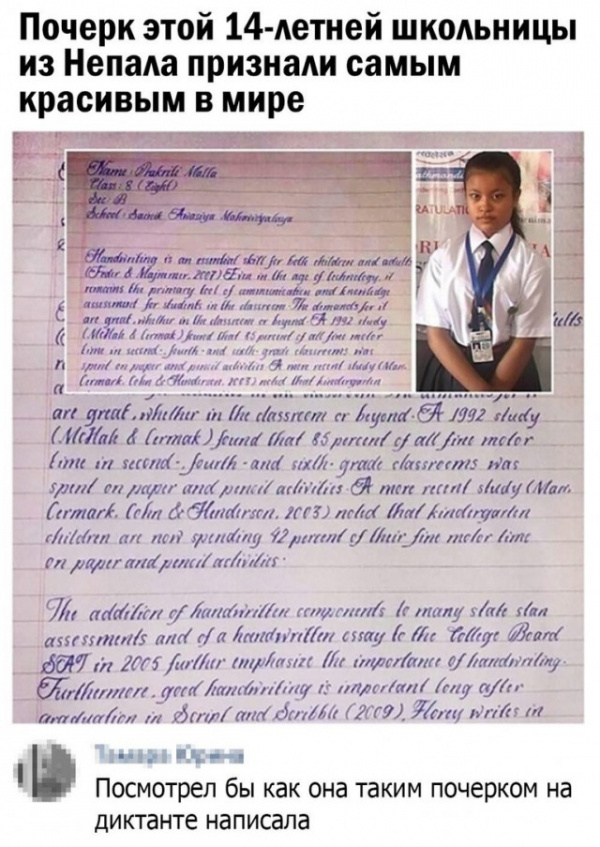 Почерк этой 14-летней школьницы
из Непала признали самым
красивым в мире
Name: Prakriti Malla
Class: 8 (Eight)
Sec: B
School: Sainik Awasiya Mahavidyalaya
Handwriting is an essential skill for both children and adults
(Feder & Majnemer, 2007) Even in the age of technology, it
remains the primary tool of communication and knowledge
assessment for students in the classroom. The demands for it
are great, whether in the classroom or beyond. A 1992 study
(McHale & Cermak) found that 85 percent of all fine motor
time in second-, fourth- and sixth- grade classrooms was
spent on paper and pencil activities. A more recent study (Marr,
Cermark, Cohn & Henderson, 2003) noted that kindergarten
RATULATI
ults
are great, whether in the classroom or beyond. A 1992 study
(McHale & Cermak) found that 85 percent of all fine motor
time in second-, fourth- and sixth- grade classrooms was
spent on paper and pencil activities. A more recent study (Marr,
Cermark, Cohn & Henderson, 2003) noted that kindergarten
children are now spending 42 percent of their fine motor time
on paper and pencil activities.
The addition of handwritten components to many state stan
assessments and of a handwritten essay to the College Board
SAT in 2005 further emphasize the importance of handwriting.
Furthermore, good handwriting is important long after
graduation in Script and Scribble (2009), Florey writes in
Посмотрел бы как она таким почерком на
диктанте написала